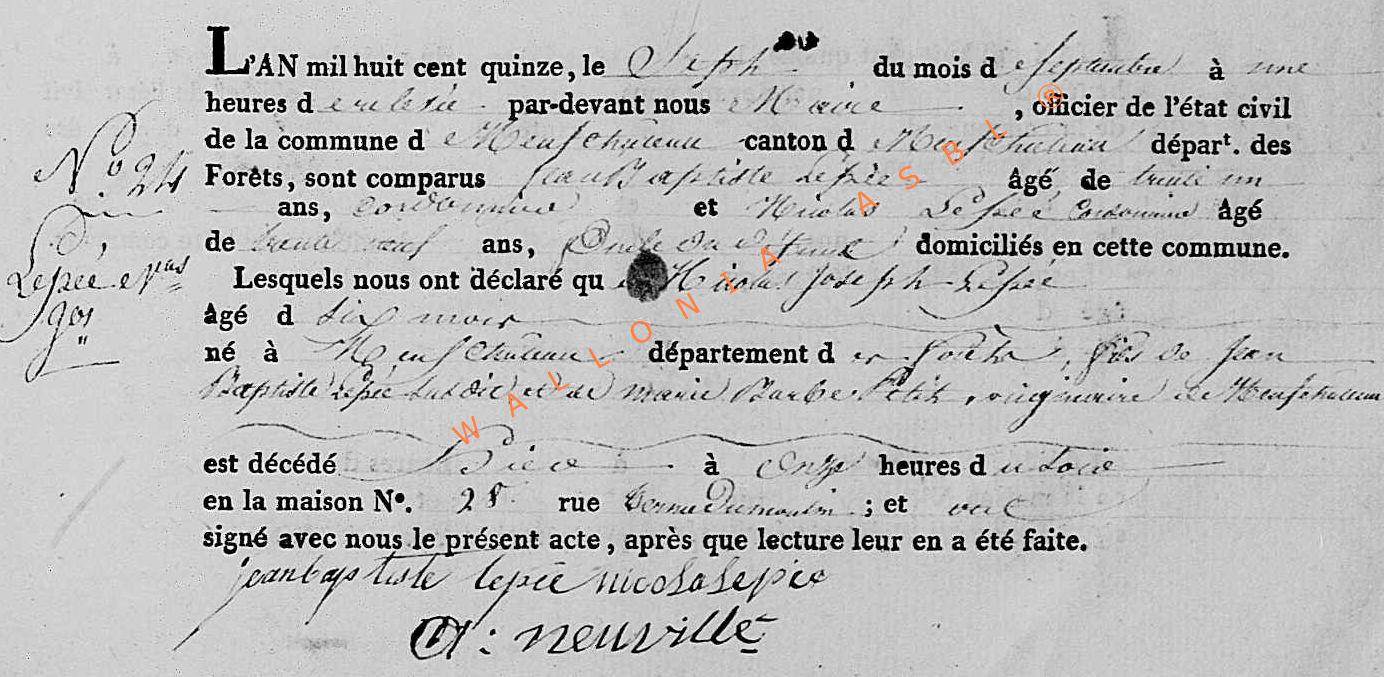 L'AN mil huit cent quinze, le Sept du mois de Septembre à une
heures de relevée par-devant nous Maire, officier de l'état civil
de la commune de Neufchateau canton de Neufchateau départ. des
N° 24
Forêts, sont comparus Jean Baptiste Lepée âgé de trente un
ans, cordonnier et Nicolas Lepée Cordonnier âgé
D.
de trente neuf ans, Oncle du défunt domiciliés en cette commune.
Lepée
Lesquels nous ont déclaré que Nicolas Joseph Lepée
âgé de six mois
né à Neufchateau département des forêts, fils de Jean
Baptiste Lepée susdit et de marie Barbe Petit, originaire de Neufchateau
est décédé hier à Onze heures du soir
en la maison N°. 28 rue du moulin; et ont
signé avec nous le présent acte, après que lecture leur en a été faite.
jean baptiste lepée nicola lepée
neuville
WALLONIA ASBL ©